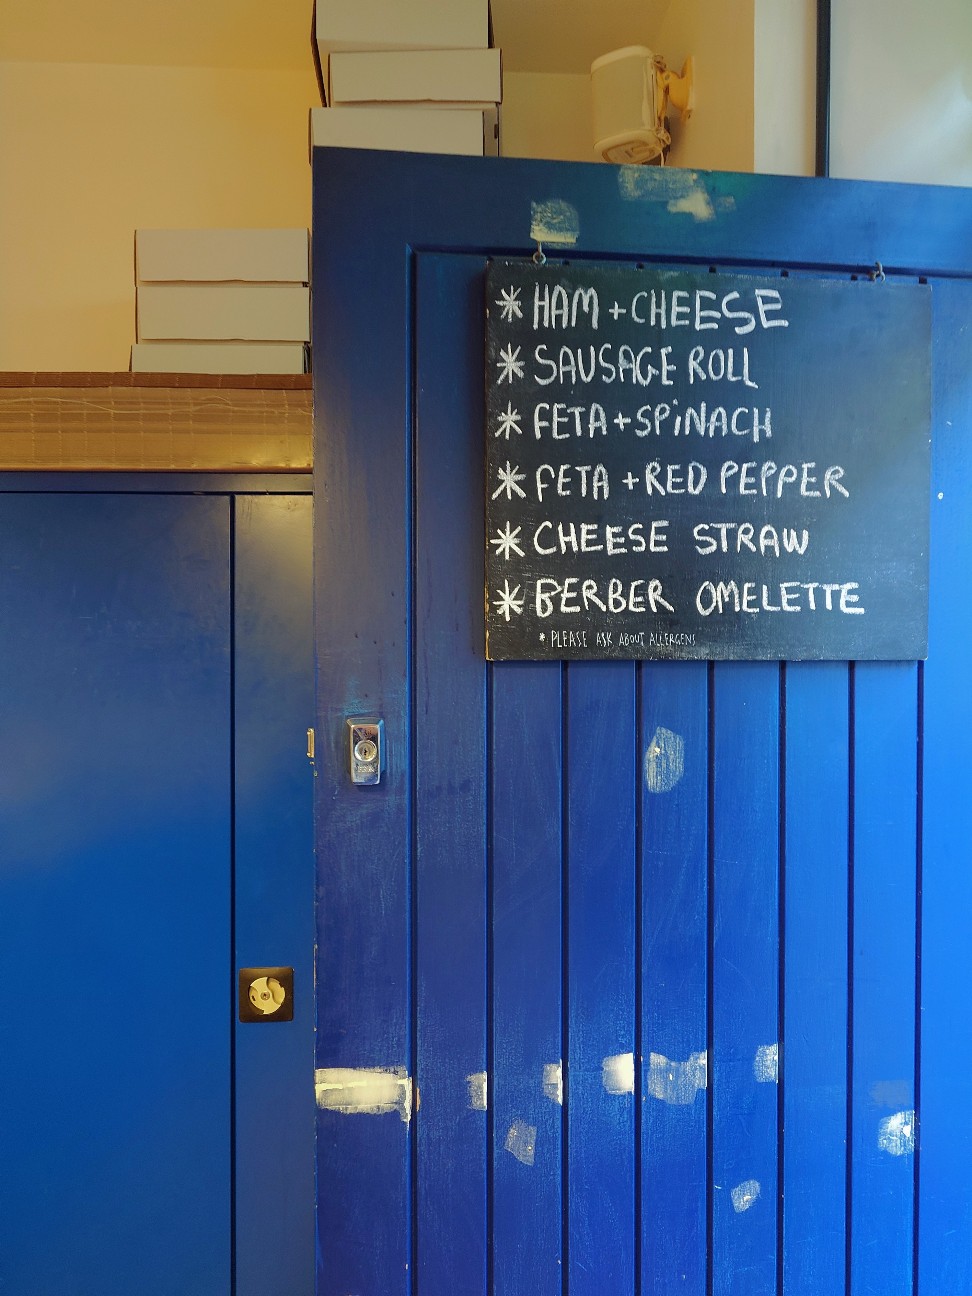 * HAM + CHEESE
* SAUSAGE ROLL
* FETA + SPiNACH
* FETA + RED PEPPER
* CHEESE STRAW
* BERBER OMELETTE
* PLEASE ASK ABOUT ALLERGENS